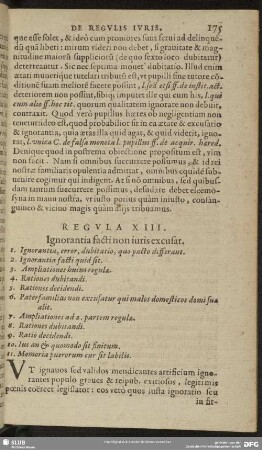 DE REGVLIS IVRIS. 175
quæ esse solet, & ideò cum pronitores sunt serui ad delinquen
dũ quã liberi: mirum videri non debet, si grauitate & mag-
nitudine maiorũ suppliciorũ (de quo sexto loco dubitatur)
deterreantur. Sic nec septima mouet dubitatio. Illud enim
ætati munerique tutelari tributũ est, vt pupilli sine tutore cõ-
ditionẽ suam meliorẽ facere possint, l. sed et si ff. de instit. act.
deteriorem non possint, sibi q; imputet ille qui cum his, l. qui
cum alio ff. hoc tit. quorum qualitatem ignorare non debuit,
contraxit. Quod verò pupillus hæres ob negligentiam non
succurritur
& ignorantia, quia ætas illa quid agat, & quid viderit, ignorat,
l. vnica C. de falsa moneta l. pupillus ff. de acquir. hæred.
Denique quod in postrema obiectione propositum est, vim
non facit. Nam si omnibus succurrere possumus, & id rei
nostræ familiaris opulentia admittat, omnibus equidẽ subue-
nire cogimur qui indigent. At si nõ omnibus, sed quibus-
dam tantum succurrere possimus, desudare debet eleemo-
syna in manu nostra, vt iusto potius quàm iniusto, consan-
guineo & vicino magis quàm alijs tribuamus.
REGVLA XIII.
Ignorantia facti non iuris excusat.
1. Ignorantia, error, dubitatio, quo pacto differant.
2. Ignorantia facti quid sit.
3. Ampliationes huius regulæ.
4. Rationes dubitandi.
5. Rationes decidendi.
6. Paterfamilias non excusatur qui malos domesticos domi suæ
alit.
7. Ampliationes ad 2. partem regulæ.
8. Rationes dubitandi.
9. Ratio decidendi.
10. Ius an & quomodo sit finitum.
11. Memoria puerorum cur sit labilis.
VT ignauos sed validos mendicantes artificium igno-
rantes populo graues & reipub. exitiosos, legitimis
pœnis coërcet legislator: eos verò quos iusta ignoratio seu
in fir-
SLUB
DFG